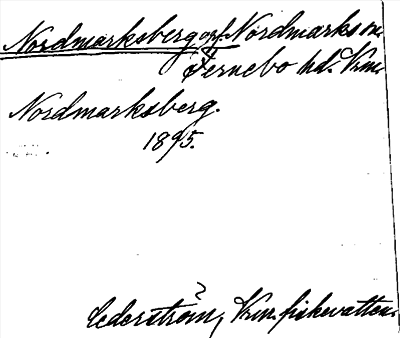 Nordmarksberg grf. Nordmarks sn.
Fernebo hd. Vrm.
Nordmarksberg.
1895.
Cederström, Vrm. fiskevatten.